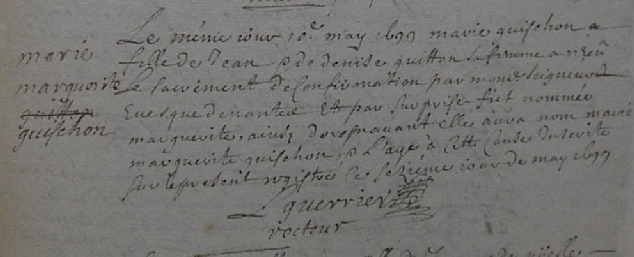 marie
marguerite
guitton
guischon
Le même iour 10e may 1699 marie guischon a
fille de Jean & de denise guitton sa femme a receu
le sacrement de confirmation par monseigneur
Euesque de nantes Et par surprise fut nommée
marguerite, ainsi doresnauant elle aura nom marie
marguerite guischon & L'aye a cette cause Inserite
sur le present registre ce seziéme iour de may 1699
L guerrier
recteur